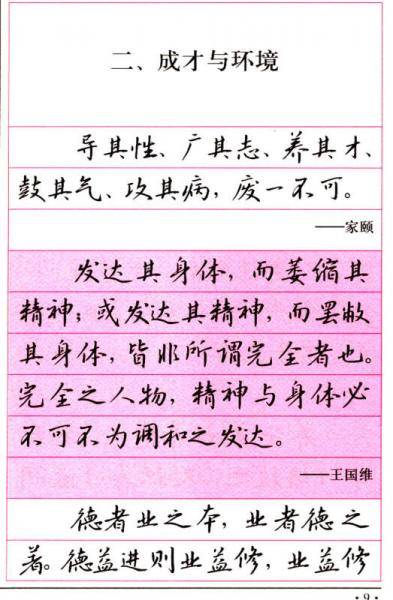 二、成才与环境
导其性、广其志、养其才、
鼓其气、攻其病，废一不可。
——家颐
发达其身体，而萎缩其
精神；或发达其精神，而罢敝
其身体，皆非所谓完全者也。
完全之人物，精神与身体必
不可不为调和之发达。
——王国维
德者业之本，业者德之
着。德益进则业益修，业益修
·9·